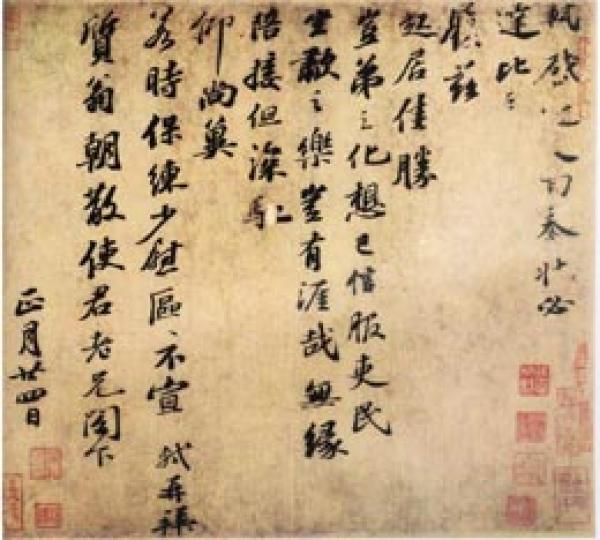 軾啓近人回奉狀必
達比日
履茲
起居佳勝
豈弟之化想已信服吏民
坐歗之樂豈有涯哉無緣
陪接但深馳
仰尚冀
若時保練少慰區區不宣 軾再拜
質翁朝散使君老兄閤下
正月廿四日